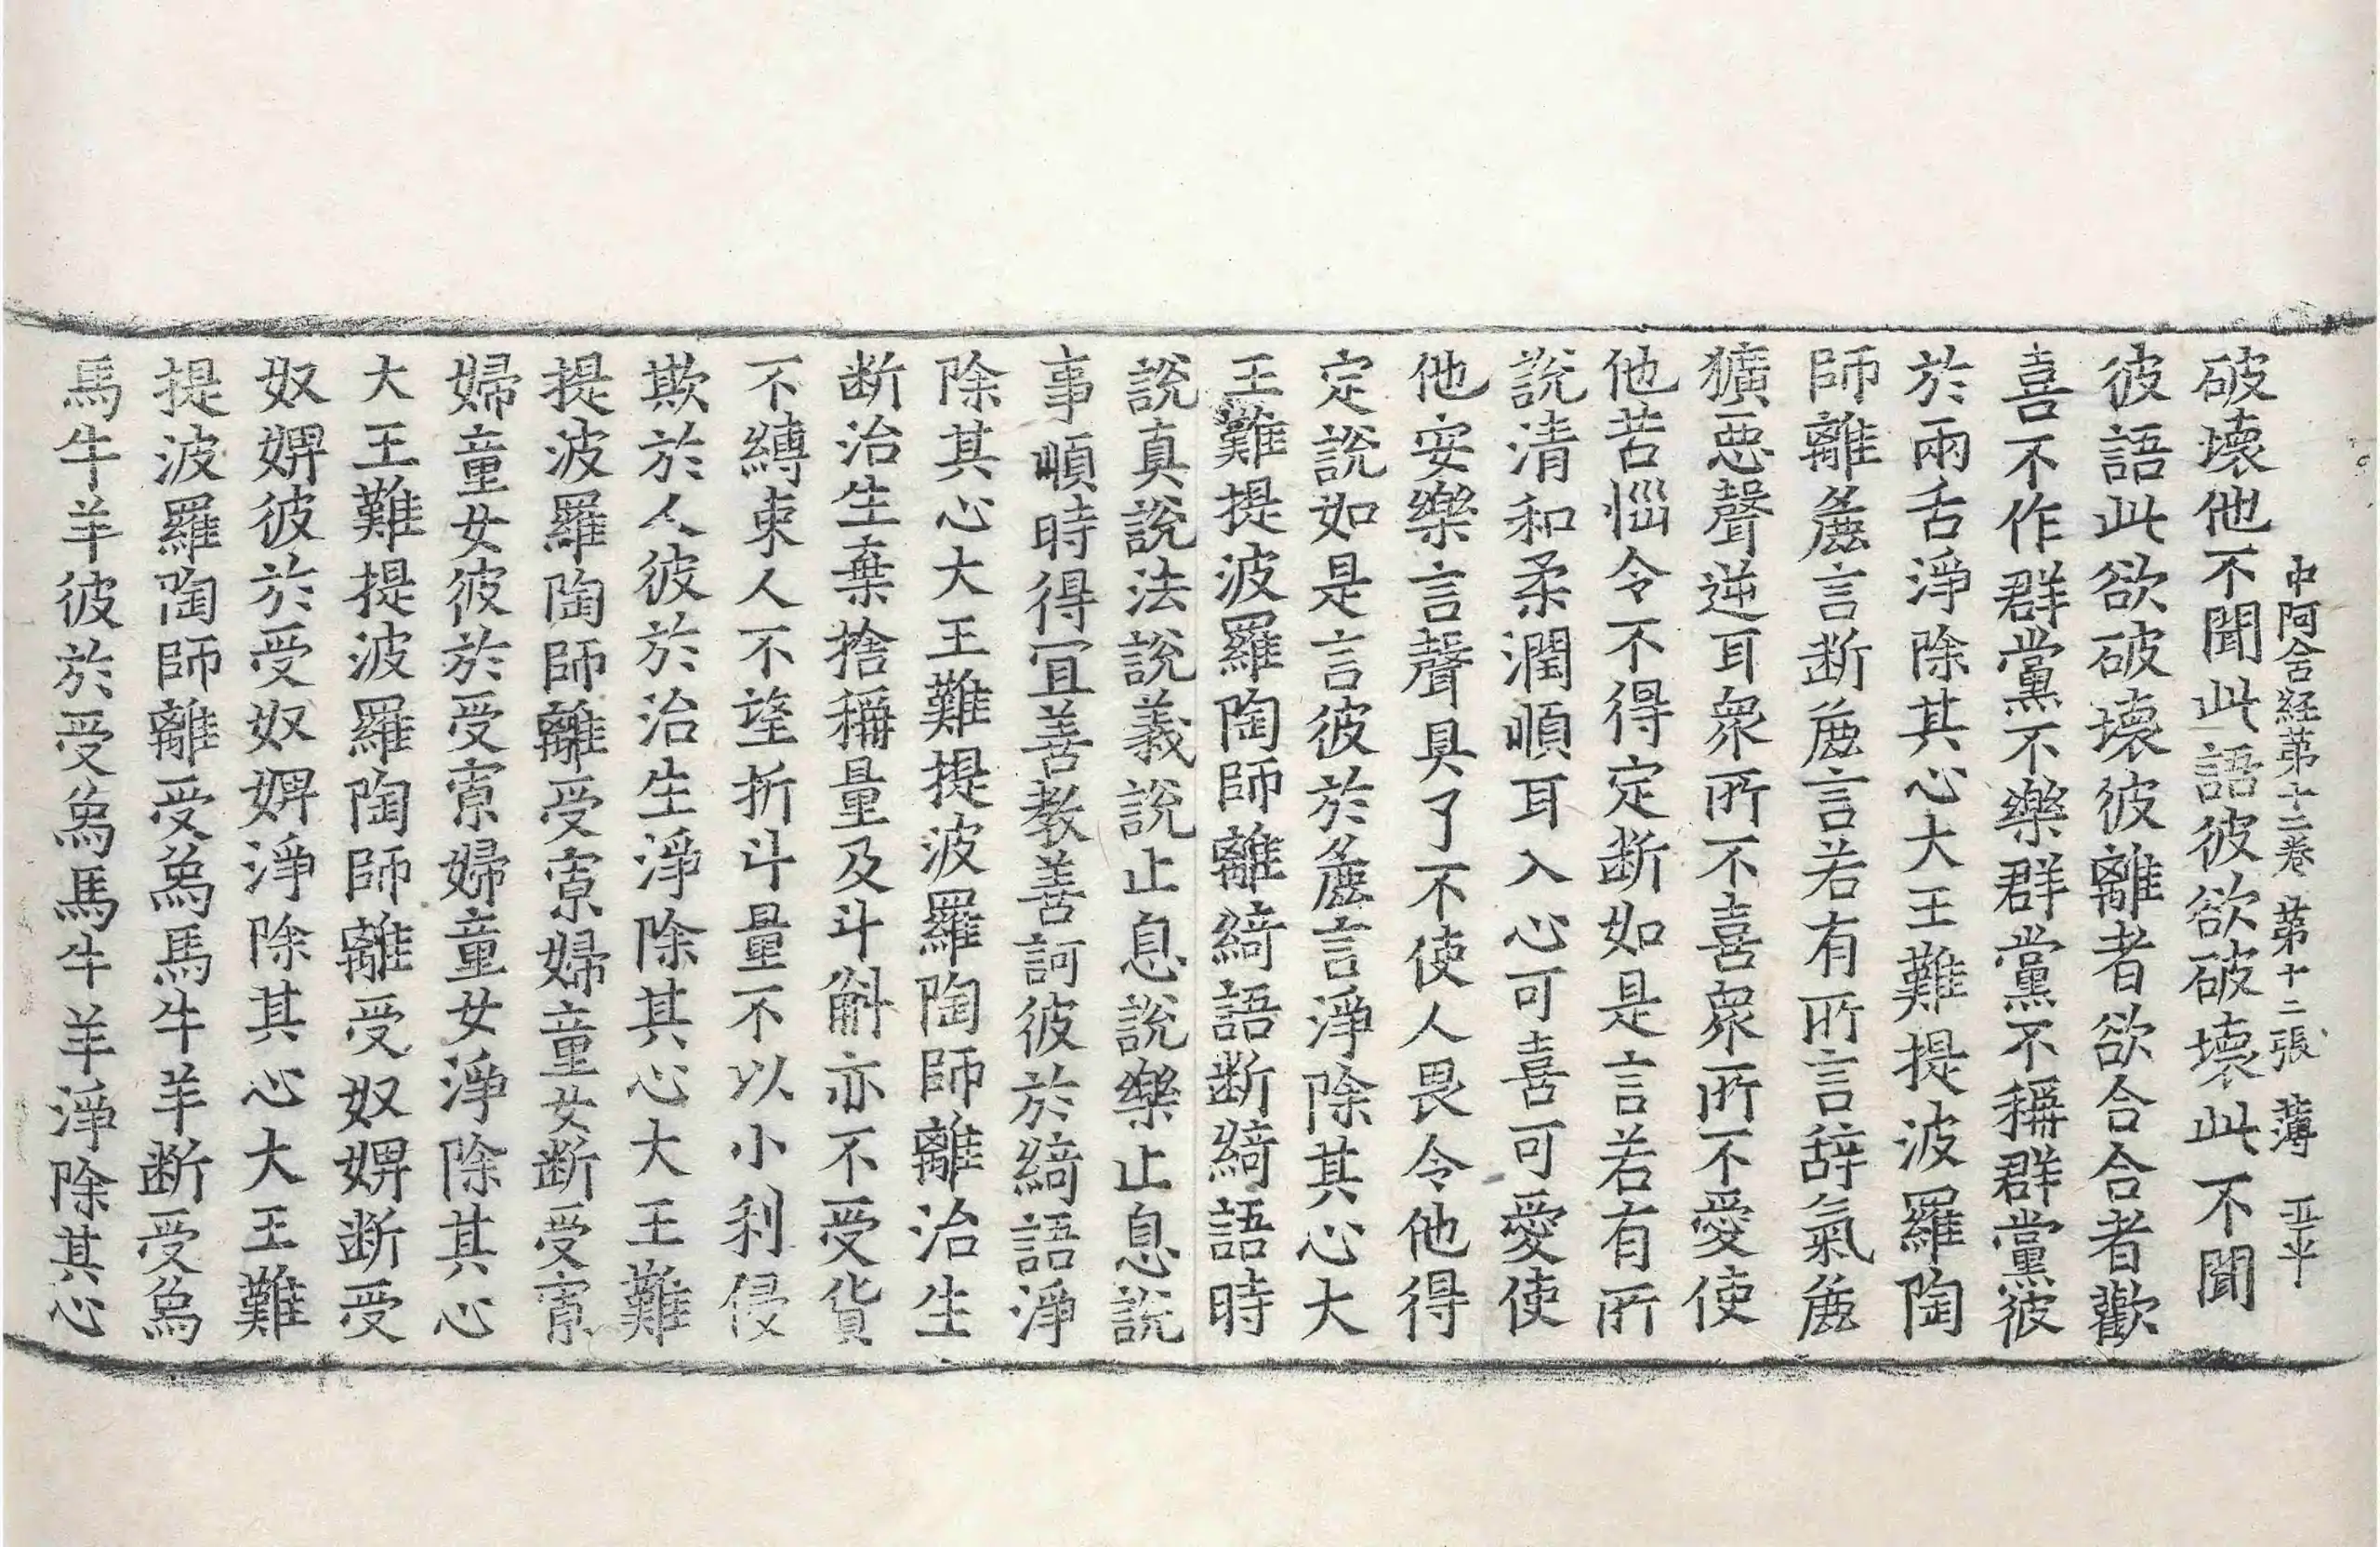 中阿含經第十二卷 第十二張 薄 亚平
破壞他不聞此語彼欲破壞此不聞
彼語此欲破壞彼離者欲合合者歡
喜不作群黨不樂群黨不稱群黨彼
於兩舌淨除其心大王難提波羅陶
師離麁言斷麁言若有所言辞氣麁
獷惡聲逆耳衆所不喜衆所不愛使
他苦惱令不得定斷如是言若有所
說清和柔潤順耳入心可喜可愛使
他安樂言聲具了不使人畏令他得
定說如是言彼於麁言淨除其心大
王難提波羅陶師離綺語斷綺語時
說真說法說義說止息說樂止息說
事順時得宜善教善訶彼於綺語淨
除其心大王難提波羅陶師離治生
斷治生棄捨稱量及斗斛亦不受貨
不縛束人不望折斗量不以小利侵
欺於人彼於治生淨除其心大王難
提波羅陶師離受寡婦童女斷受寡
婦童女彼於受寡婦童女淨除其心
大王難提波羅陶師離受奴婢斷受
奴婢彼於受奴婢淨除其心大王難
提波羅陶師離受象馬牛羊斷受象
馬牛羊彼於受象馬牛羊淨除其心